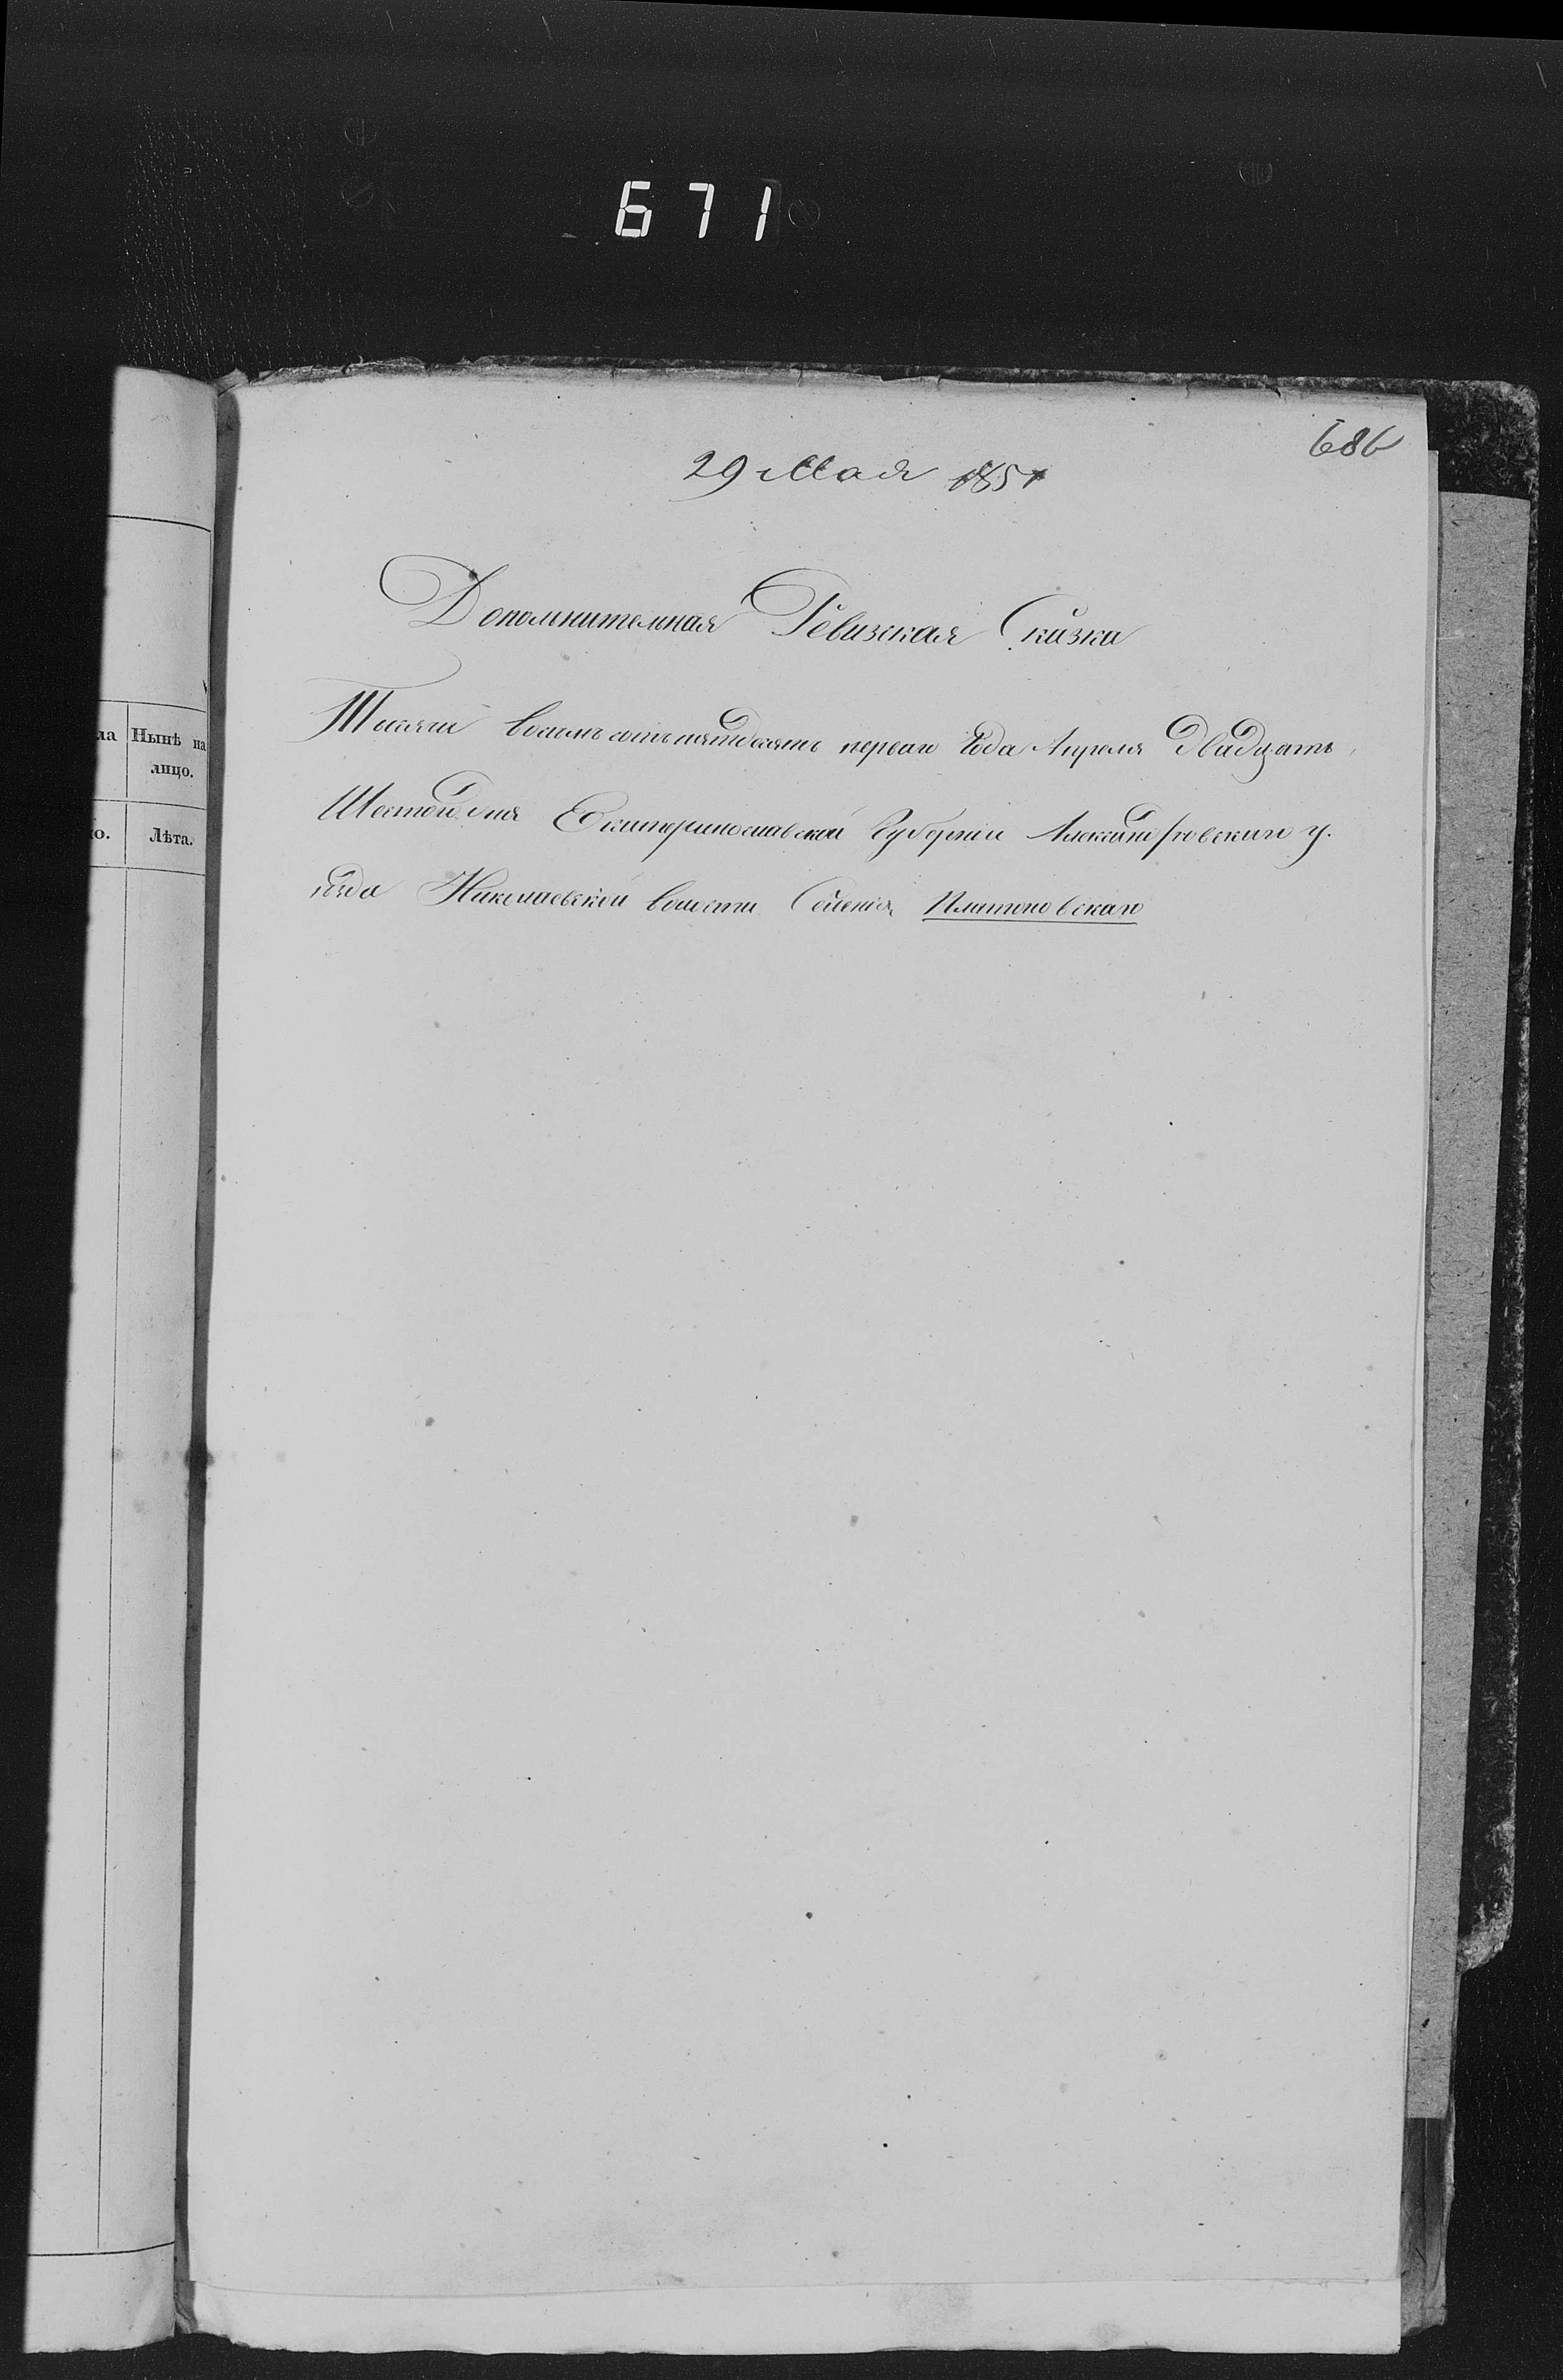 671
686
29 Мая 1851
Дополнительная Ревизская Сказка
Тысяча восемьсотъ пятдесятъ перваго Года Апреля двадцать
Шестаго дня Екатеринославской Губерніи Александровскаго у.
ѣзда Николаевской волости Селенія Платоновскаго
ла
Нынѣ на
лицо.
го.
Лѣта.